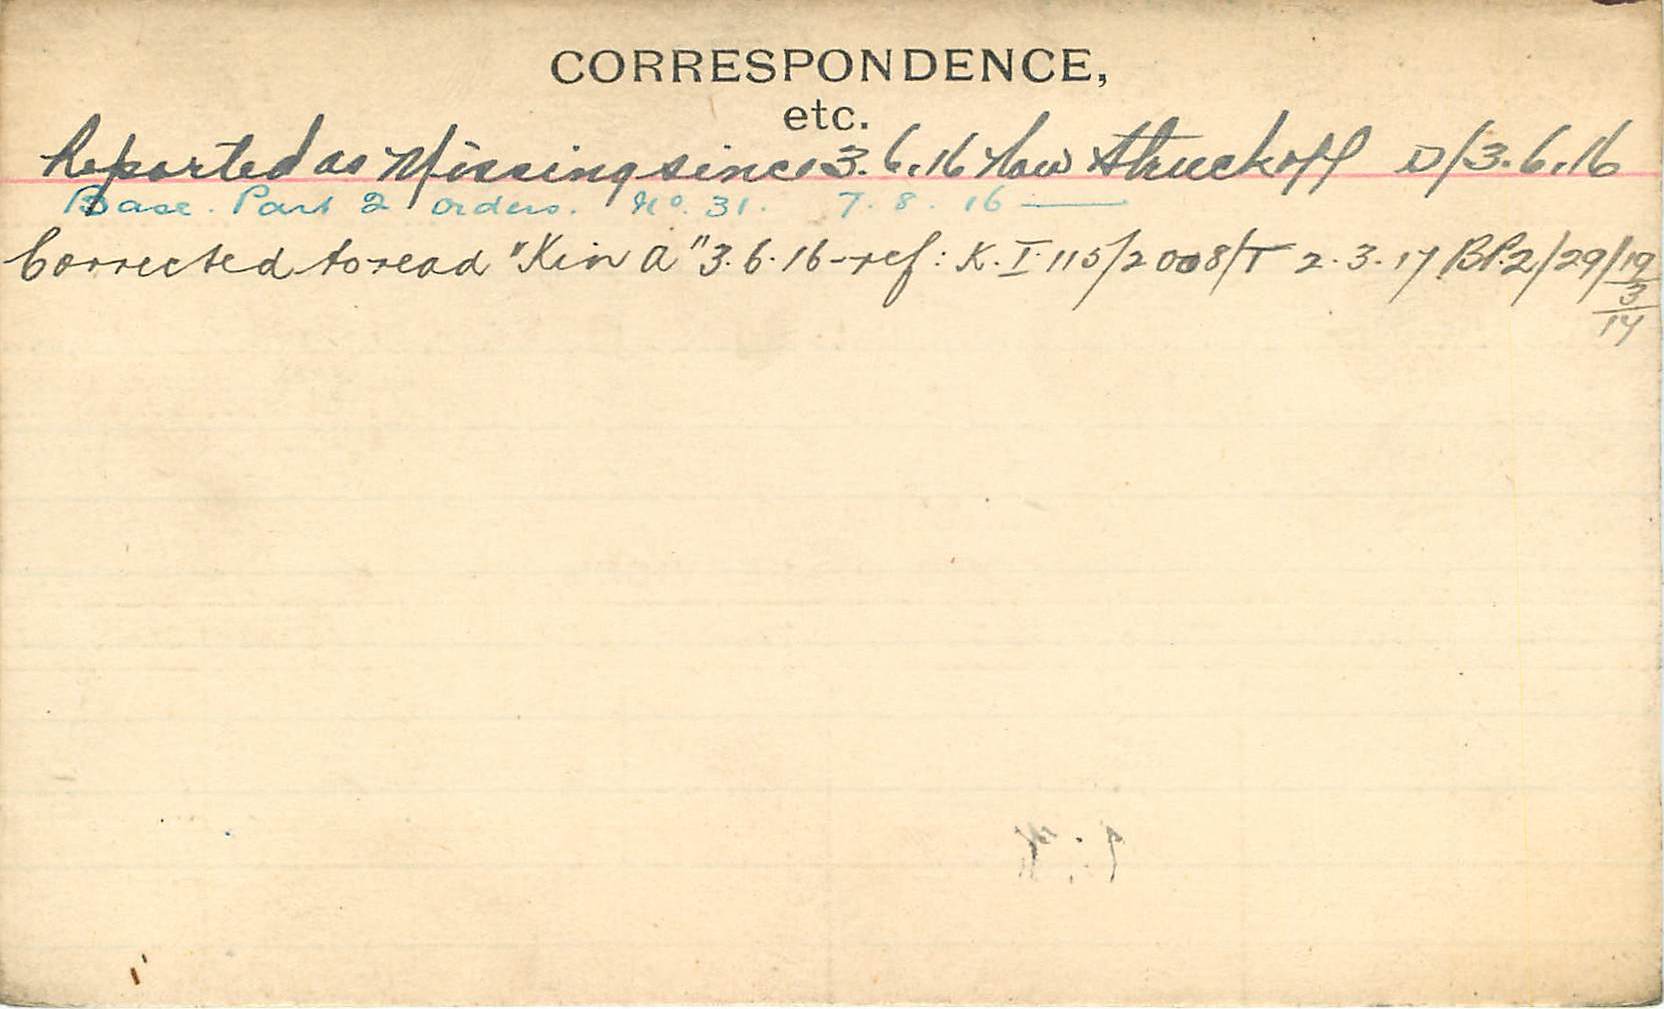 CORRESPONDENCE,
etc.
Reported as Missing since 3.6.16 Now Struck off D/3.6.16
Base. Part 2 orders. No. 31. 7.8.16
Corrected to read "K in A" 3.6.16 - ref: K.I.115/2008/T 2.3.17 BP.2/29/19
3
17